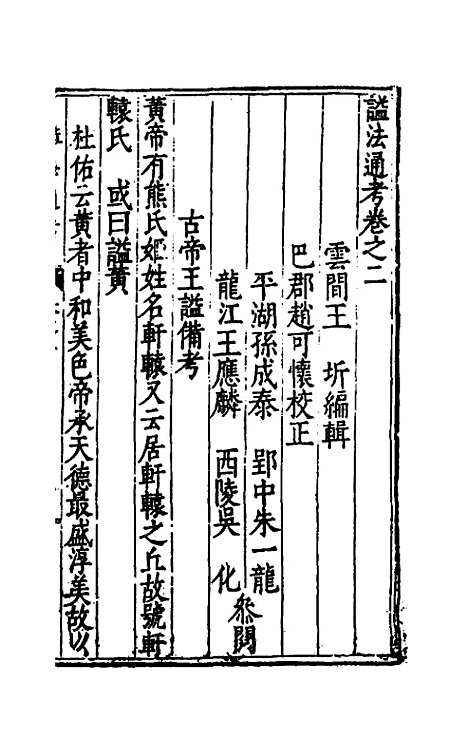 謚法通考卷之二
雲間王　圻編輯
巴郡趙可懷校正
平湖孫成泰　郢中朱一龍
龍江王應麟　西陵吳　化
叅閱
古帝王謚備考
黃帝有熊氏姬姓名軒轅又云居軒轅之丘故號軒
轅氏　或曰謚黃
杜佑云黃者中和美色帝承天德最盛淳美故以